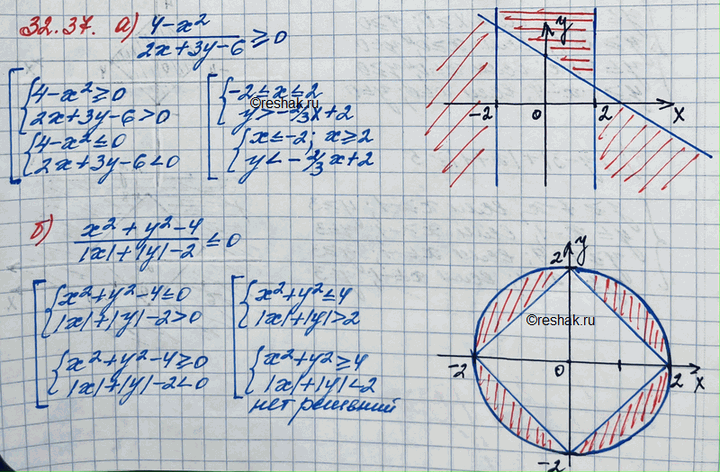 32.37. а) (4-x²)/(2x+3y-6) ≥ 0
[ {4-x² ≥ 0
2x+3y-6 > 0
{4-x² ≤ 0
2x+3y-6 < 0
[ {-2 ≤ x ≤ 2
y > -2/3x+2
{x ≤ -2; x ≥ 2
y < -2/3x+2
©reshak.ru
y
-2 0 2 x
б) (x²+y²-4)/(|x|+|y|-2) ≤ 0
[ {x²+y²-4 ≤ 0
|x|+|y|-2 > 0
{x²+y²-4 ≥ 0
|x|+|y|-2 < 0
[ {x²+y² ≤ 4
|x|+|y| > 2
{x²+y² ≥ 4
|x|+|y| < 2
нет решений
2 y
©reshak.ru
-2 0 2 x
-2